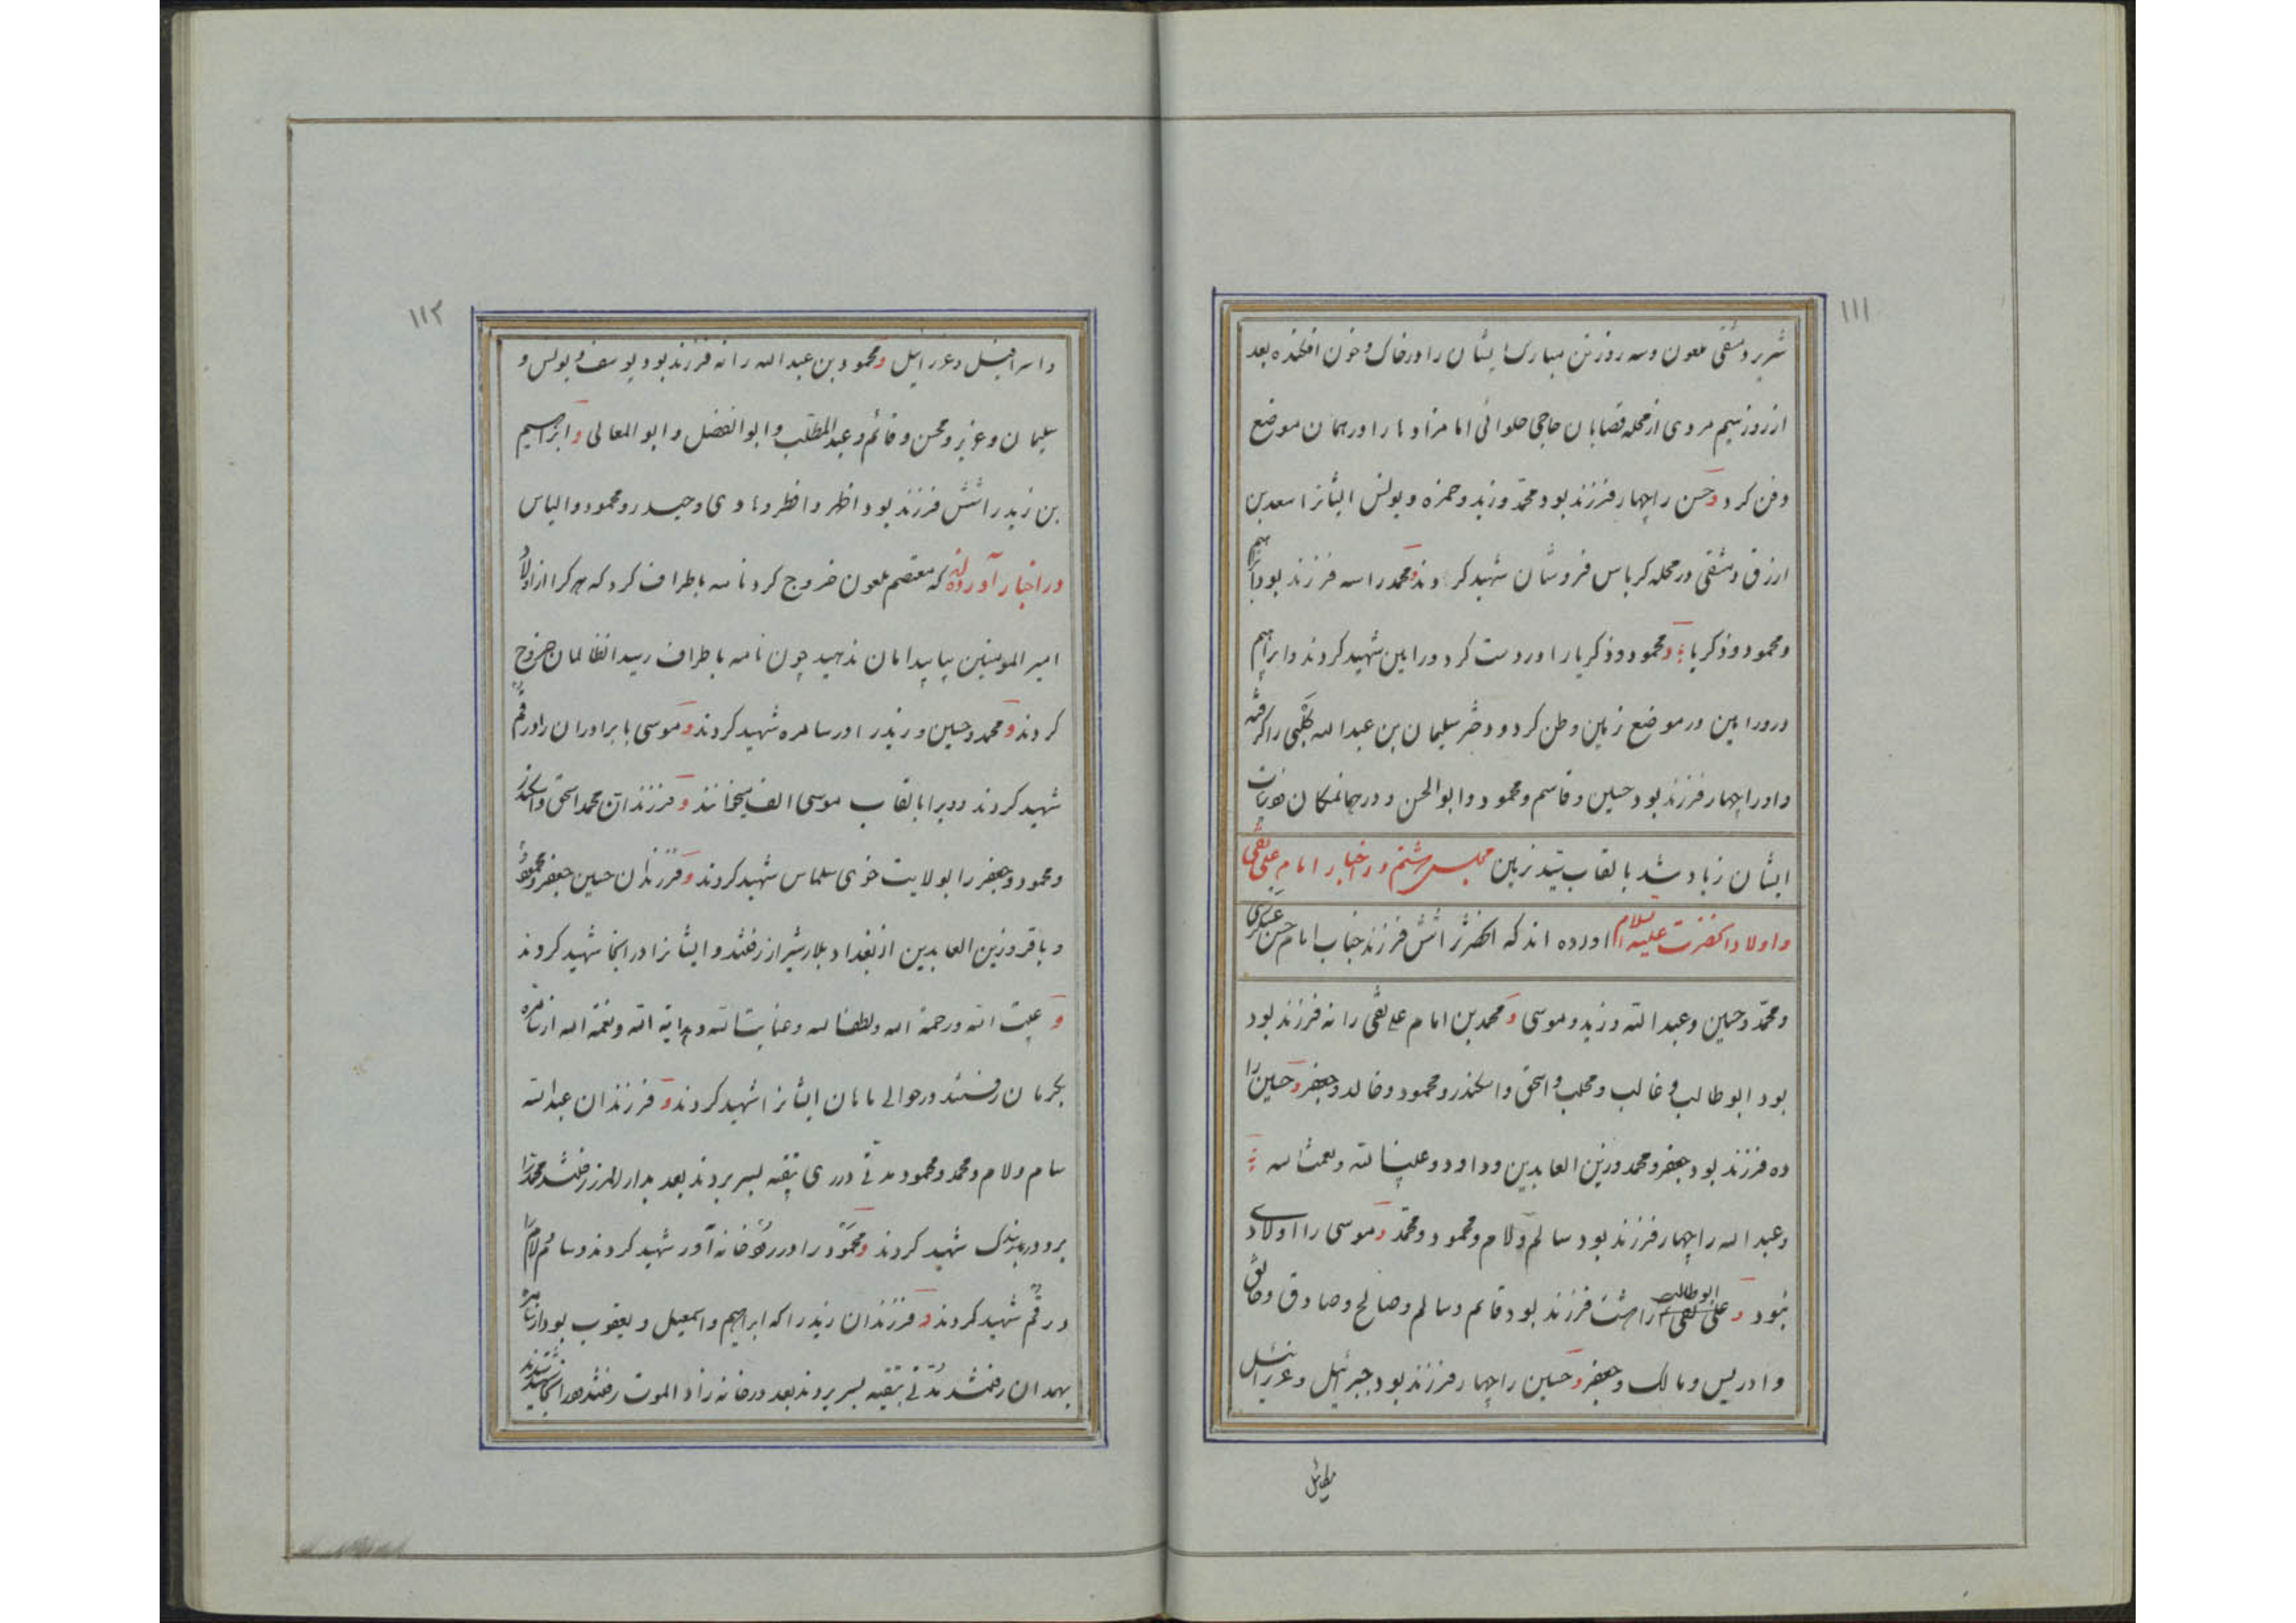 ۱۱۱
شریر دمشقی ملعون و سه روز تن مبارک ایشان را در خاک و خون افکنده بعد
از روز سیم مردی از محله قصابان حاجی حلوائی امامزاده ها را در همان موضع
دفن کرد و حسن را چهار فرزند بود محمّد و زید و حمزه و یونس ایشانرا سعد بن
ارزق دمشقی در محله کرباس فروشان شهید کردند و محمد را سه فرزند بود ابراهیم
و محمود و ذکریا و محمود و ذکریا را در دست کرد ورامین شهید کردند و ابراهیم
در ورامین در موضع زمین وطن کرد و دختر سلیمان بن عبدالله کلبی را گرفته
و او را چهار فرزند بود حسین و قاسم و محمود و ابوالحسن و در همانمکان
ایشان زیاد شد بالقاب سیّد زمین مجلس هشتم در اخبار امام علی نقی
و اولاد آنحضرت علیه السلام آورده اند که آنحضرترا شش فرزند جناب امام حسن عسکری
و محمّد و حسین و عبدالله و زید و موسی و محمد بن امام علی نقی را نه فرزند بود
بود ابوطالب و غالب و محلب و اسحق و اسکندر و محمود و خالد و جعفر و حسین را
ده فرزند بود جعفر و محمد و زین العابدین و داود و نعمت الله
و عبدالله را چهار فرزند بود سالم و لام و محمود و محمّد و موسی را اولادی
نبود و ابوطالب علی نقی را هشت فرزند بود قاسم و سالم و صالح و صادق و
و ادریس و مالک و جعفر و حسین را چهار فرزند بود جبرئیل و عزرائیل
۱۱۲
و اسرافیل و عزرایل و محمود بن عبدالله را نه فرزند بود یوسف و یونس و
سلیمان و عزیز و محسن و قائم و عبدالمطلب و ابوالفضل و ابوالمعالی و ابراهیم
بن زید را شش فرزند بود اظهر و هادی و حیدر و محمود و الیاس
در اخبار آورده اند که معتصم ملعون خروج کرد نامه باطراف کرد که هر کرا از اولاد
امیرالمومنین بیابید امان ندهید چون نامه باطراف رسید آنظالمان خروج
کردند و محمد و حسین و زید را در سامره شهید کردند و موسی با برادران را در قم
شهید کردند و ویرا بالقاب موسی الف میخوانند و فرزندان محمد اسحق و اسکندر
و محمود و جعفر را بولایت خوی سلماس شهید کردند و فرزندان حسین جعفر و محمود
و باقر و زین العابدین از بغداد بلار شیراز رفتند و ایشانرا در آنجا شهید کردند
و غیث الله و رحمة الله و لطف الله و عنایت الله و هدایة الله و نعمة الله از سامره
بکرمان رفتند در حوالی ماهان ایشانرا شهید کردند و فرزندان عبدالله
سام و لام و محمد و محمود مدتی در ری بتقیه بسر بردند بعد بدارالمرز رفتند محمد را
شهید کردند و محمود را در رودخانه آور شهید کردند و سام و لام را
در قم شهید کردند و فرزندان زید را که ابراهیم و اسمعیل و یعقوب بود از سامره
بهمدان رفتند مدتی بتقیه بسر بردند بعد در خانه زاد الموت رفتند در آنجا شهید شدند